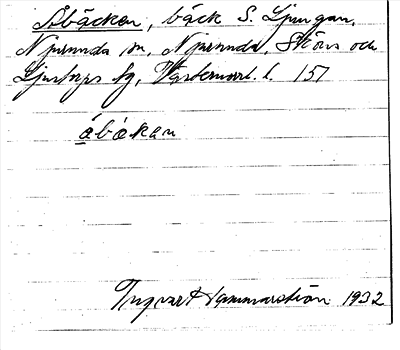 Åbäcken, bäck S. Ljungan,
Njurunda sn, Njurunda, Sköns och
Ljustorps tg, Västernorrl. l. 151
åbäkan
Ingvar Hammarström 1932